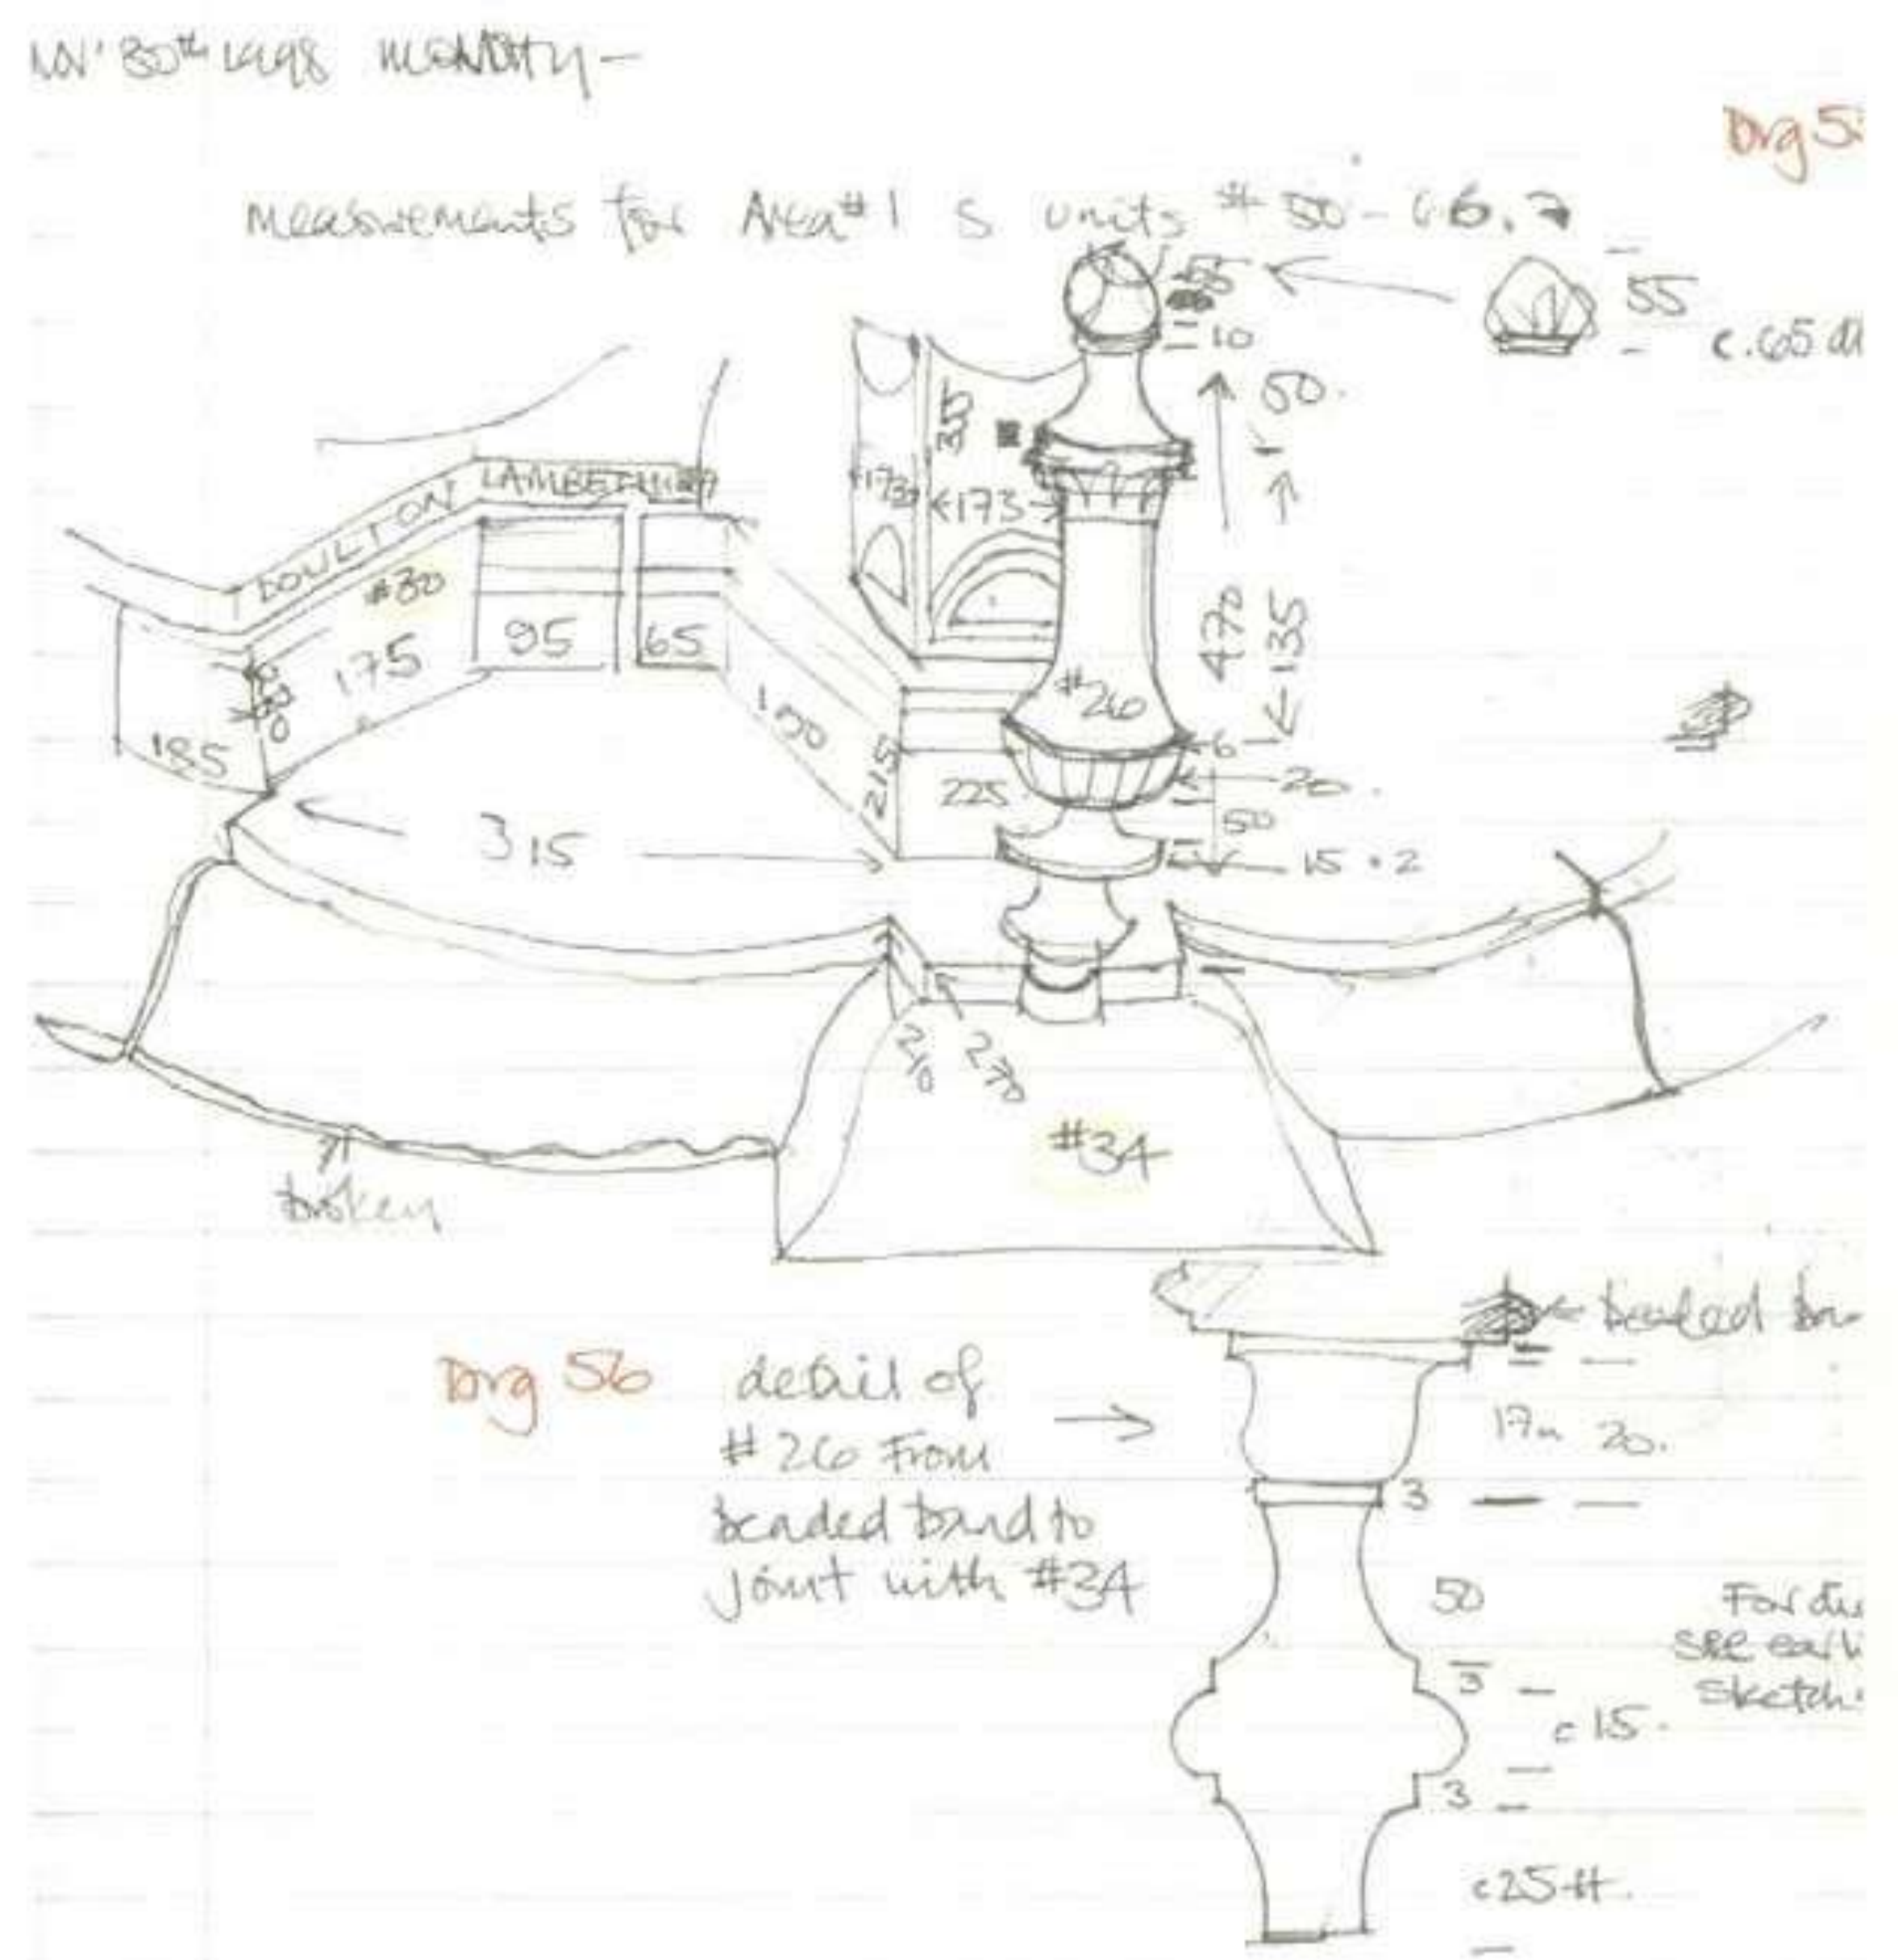 Nov 30th 1998 MONDAY -
Drg 5
measurements for Area #1 S units # 30 -
55
10
55
c.65 di
50.
355
173
<173>
DOULTON LAMBETH
#30
175
95
65
185
100
215
225
470
135
#26
6
20.
50
15 . 2
315
210
270
#34
broken
beaded ban
Drg 56
detail of
#26 From
beaded band to
joint with #34
17 20.
3
50
3
c15.
3
c25
For di
see earli
sketch